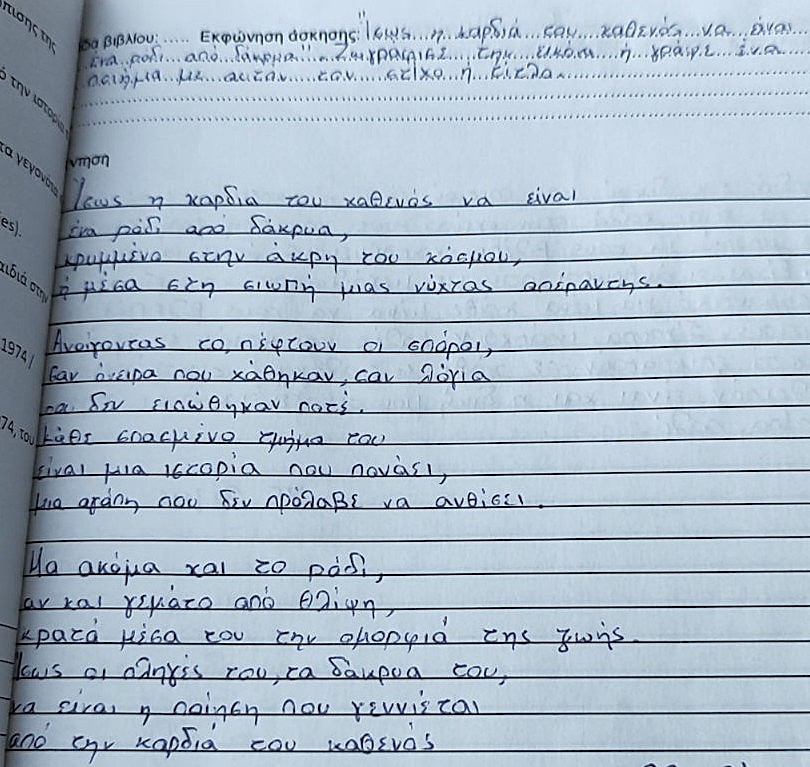 πισης της
δα βιβλίου: ..... Εκφώνηση άσκησης: "Ίσως η καρδιά του καθενός να είναι
ένα ρόδι από δάκρυα". Ζωγράφισε την εικόνα ή γράψε ένα
ποίημα με αυτόν τον στίχο ή τίτλο.
ό την ιστορία
τα γεγονότα
ντηση
es).
αιδιά στην
1974/
74, του
Ίσως η καρδια του καθενός να είναι
ένα ρόδι από δάκρυα,
κρυμμένο στην άκρη του κόσμου,
ή μέσα στη σιωπή μιας νύχτας απέραντης.
Ανοίγοντας το, πέφτουν οι σπόροι,
σαν όνειρα που χάθηκαν, σαν λόγια
που δεν ειπώθηκαν ποτέ.
Κάθε σπασμένο τμήμα του
είναι μια ιστορία που πονάει,
μια αγάπη που δεν πρόλαβε να ανθίσει.
Μα ακόμα και το ρόδι,
αν και γεμάτο από θλίψη,
κρατά μέσα του την ομορφιά της ζωής.
Ίσως οι πληγές του, τα δακρυα του,
να είναι η ποίηση που γεννιέται
από την καρδιά του καθενός